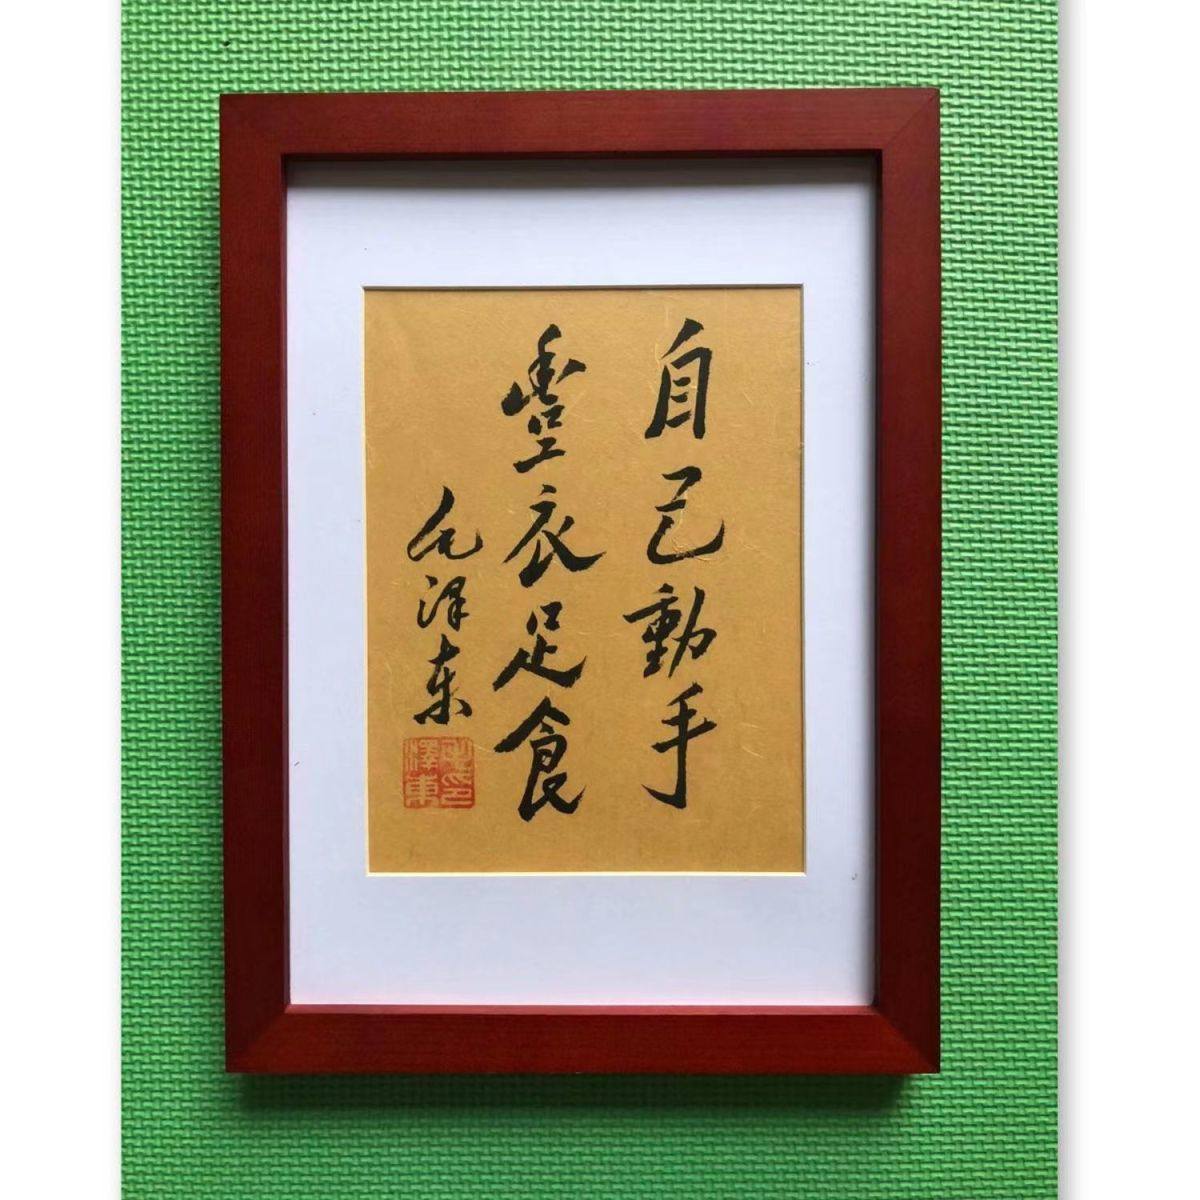 自己動手
豐衣足食
毛澤东
毛澤東印